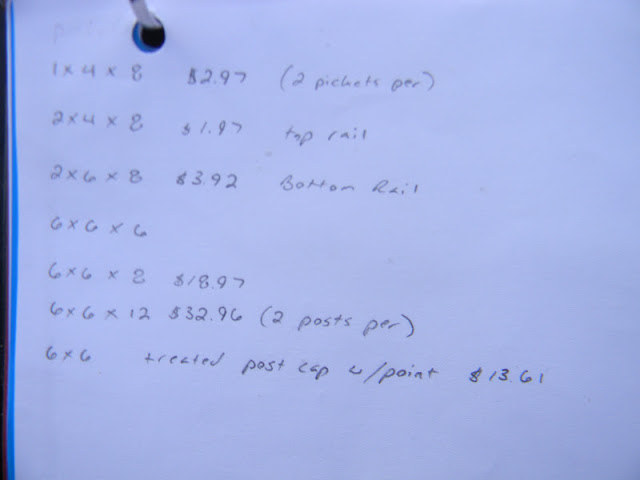 1 x 4 x 8 $2.97 (2 pickets per)
2 x 4 x 8 $1.97 top rail
2 x 6 x 8 $3.92 Bottom Rail
6 x 6 x 6
6 x 6 x 8 $18.97
6 x 6 x 12 $32.96 (2 posts per)
6 x 6 treated post cap w/point $13.61